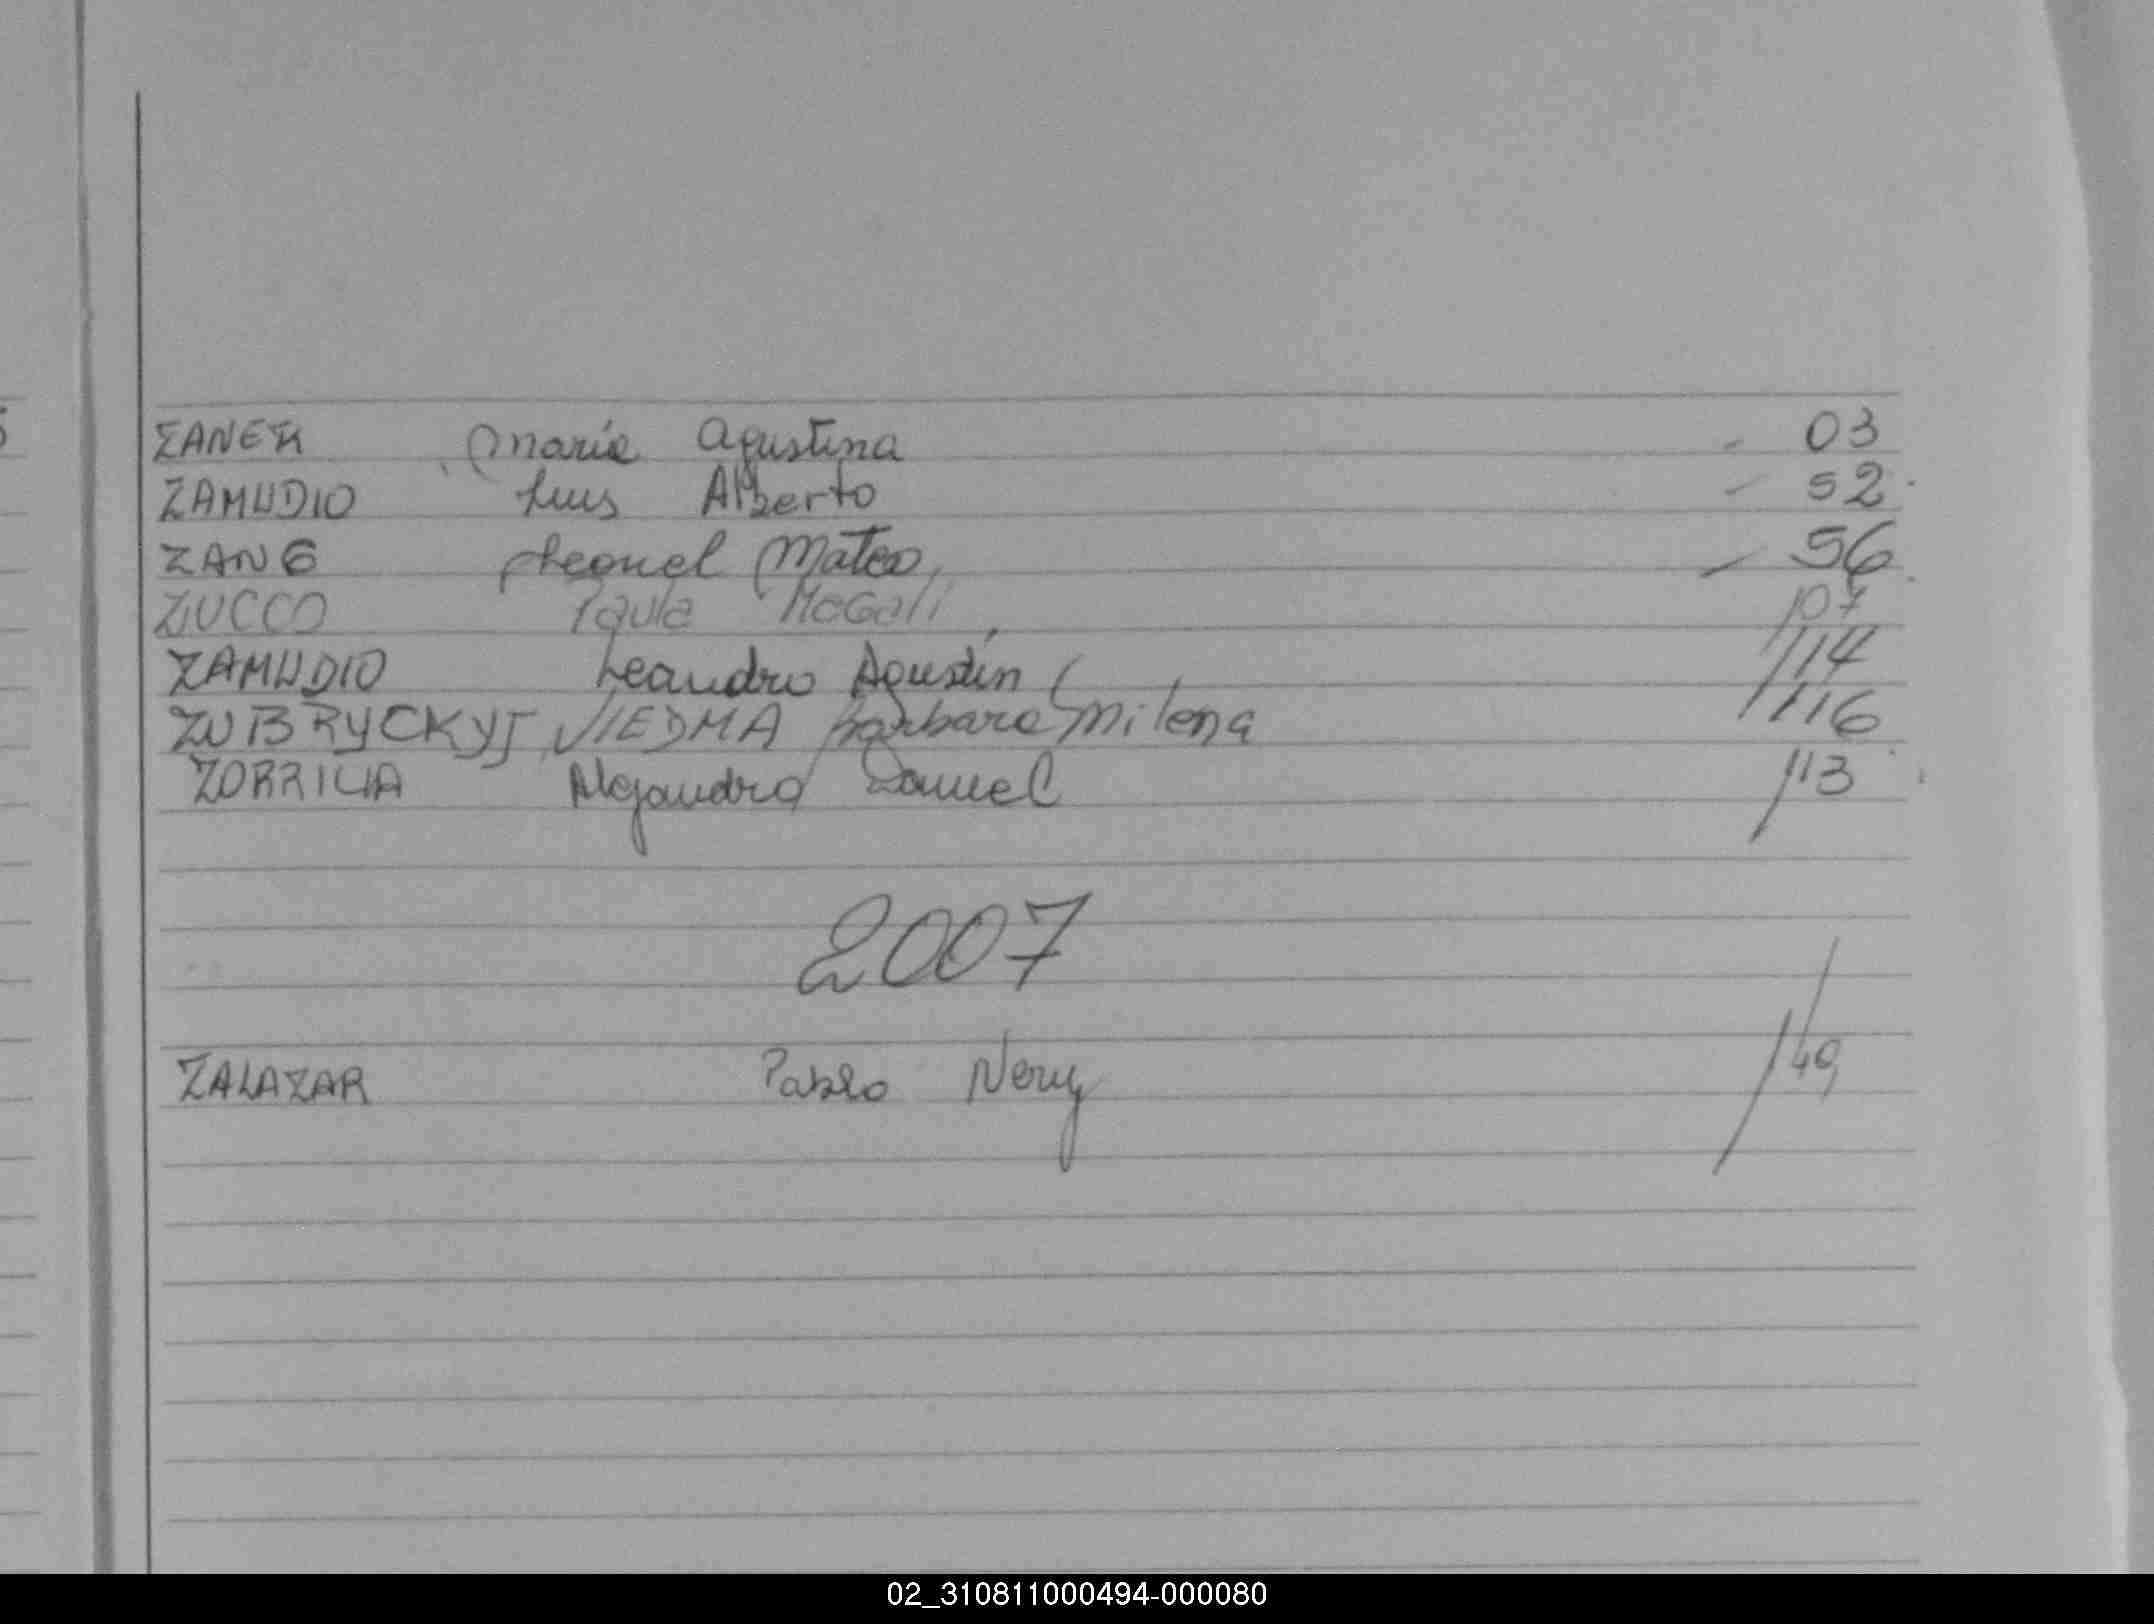 ZANEK Maria Agustina - 03
ZAMUDIO Luis Alberto - 52
ZANG Leonel Mateo - 56
ZUCCO Paula MaGali 107
ZAMUDIO Leandro Agustín 114
ZUBRYCKYJ VIEDMA Barbara Milena 116
ZORRILLA Alejandro Daniel 113
2007
ZALAZAR Pablo Nery 49
02_310811000494-000080